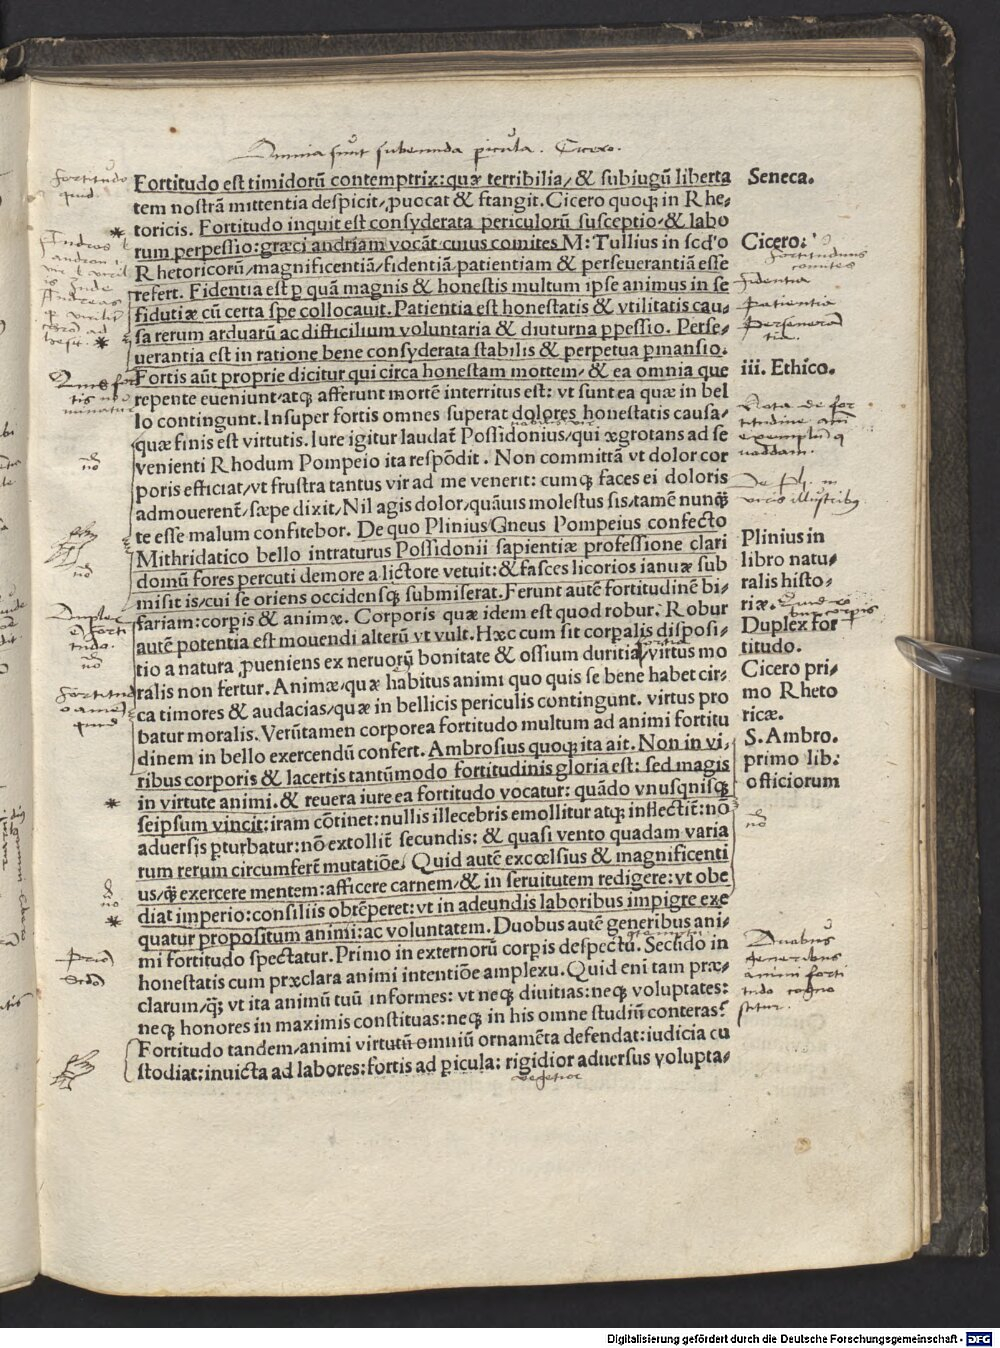 Omnia sunt subeunda picula. Cicero.
Fortitudo est timidorū contemptrix: quæ terribilia, & subiugū liberta
tem nostrā mittentia despicit, puocat & frangit. Cicero quoq; in Rhe-
toricis. Fortitudo inquit est consyderata periculorū susceptio, & labo
rum perpessio: græci andriam vocāt cuius comites M: Tullius in scd'o
Rhetoricorū, magnificentiā, fidentiā, patientiam & perseuerantiā esse
refert. Fidentia est p quā magnis & honestis multum ipse animus in se
fidutiæ cū certa spe collocauit. Patientia est honestatis & vtilitatis cau-
sa rerum arduarū ac difficilium voluntaria & diuturna ppessio. Perse-
uerantia est in ratione bene consyderata stabilis & perpetua pmansio.
Fortis aūt proprie dicitur qui circa honestam mortem, & ea omnia que
repente eueniunt, atq; afferunt mortē interritus est: vt sunt ea quæ in bel
lo contingunt. Insuper fortis omnes superat dolores honestatis causa,
quæ finis est virtutis. Iure igitur laudat Possidonius, qui ægrotans ad se
venienti Rhodum Pompeio ita respōdit. Non committā vt dolor cor
poris efficiat, vt frustra tantus vir ad me venerit: cumq; faces ei doloris
admouerent, sæpe dixit, Nil agis dolor, quāuis molestus sis, tamē nunq̄
te esse malum confitebor. De quo Plinius, Gneus Pompeius confecto
Mithridatico bello intraturus Possidonii sapientiæ professione clari
domū fores percuti demore a lictore vetuit: & fasces licorios ianuæ sub
misit is, cui se oriens occidensq; submiserat. Ferunt autē fortitudinē bi-
fariam: corpis & animæ. Corporis quæ idem est quod robur. Robur
autē potentia est mouendi alterū vt vult. Hæc cum sit corpalis disposi-
tio a natura, pueniens ex neruorū bonitate & ossium duritia, virtus mo
ralis non fertur. Animæ, quæ habitus animi quo quis se bene habet cir-
ca timores & audacias, quæ in bellicis periculis contingunt. virtus pro
batur moralis. Verūtamen corporea fortitudo multum ad animi fortitu
dinem in bello exercendū confert. Ambrosius quoq; ita ait. Non in vi-
ribus corporis & lacertis tantūmodo fortitudinis gloria est: sed magis
in virtute animi. & reuera iure ea fortitudo vocatur: quādo vnusqnisq;
seipsum vincit: iram cōtinet: nullis illecebris emollitur atq; inflectit: nō
aduersis pturbatur: nō extollit secundis: & quasi vento quadam varia
rum rerum circumfert mutatiōe. Quid autē excœlsius & magnificenti
us, q̄ exercere mentem: afficere carnem, & in seruitutem redigere: vt obe
diat imperio: consiliis obtēperet: vt in adeundis laboribus impigre exe
quatur propositum animi: ac voluntatem. Duobus autē generibus ani-
mi fortitudo spectatur. Primo in externorū corpis despectū. Secūdo in
honestatis cum præclara animi intentiōe amplexu. Quid eni tam præ-
clarum, q̄; vt ita animū tuū informes: vt neq; diuitias: neq; voluptates:
neq; honores in maximis constituas: neq; in his omne studiū conteras?
Fortitudo tandem, animi virtutū omniū ornamēta defendat: iudicia cu
stodiat: inuicta ad labores: fortis ad picula: rigidior aduersus volupta-
Seneca.
Cicero:
fidentia
patientia
iii. Ethico.
Plinius in
libro natu-
ralis histo-
riæ.
Duplex for
titudo.
Cicero pri-
mo Rheto
ricæ.
S. Ambro.
primo lib:
officiorum
Duobus
generibus
animi forti
tudo cogno
scitur.
fortitudo
quid.